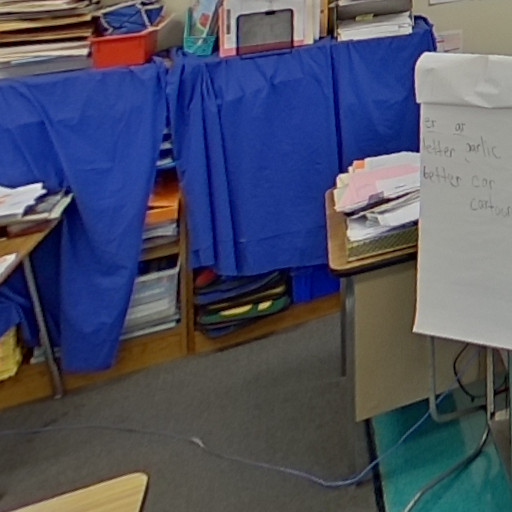 er ar
letter garlic
better car
cartoon